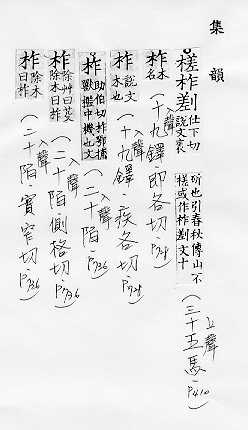 集韻
槎柞差剗仕下切說文衺
所也引春秋傳山不
槎或作柞差剗文十
(三十五馬)上聲 P410
柞木名
(十九鐸)入聲 即各切 P728
柞說文木也
(十九鐸)入聲 疾各切 P728
柞助伯切柞鄂捕
獸檻中機也文
(二十陌)入聲 P736
柞除艸曰芟
除木曰柞
(二十陌)入聲 側格切 P736
柞除木曰柞
(二十陌)入聲 實窄切 P736